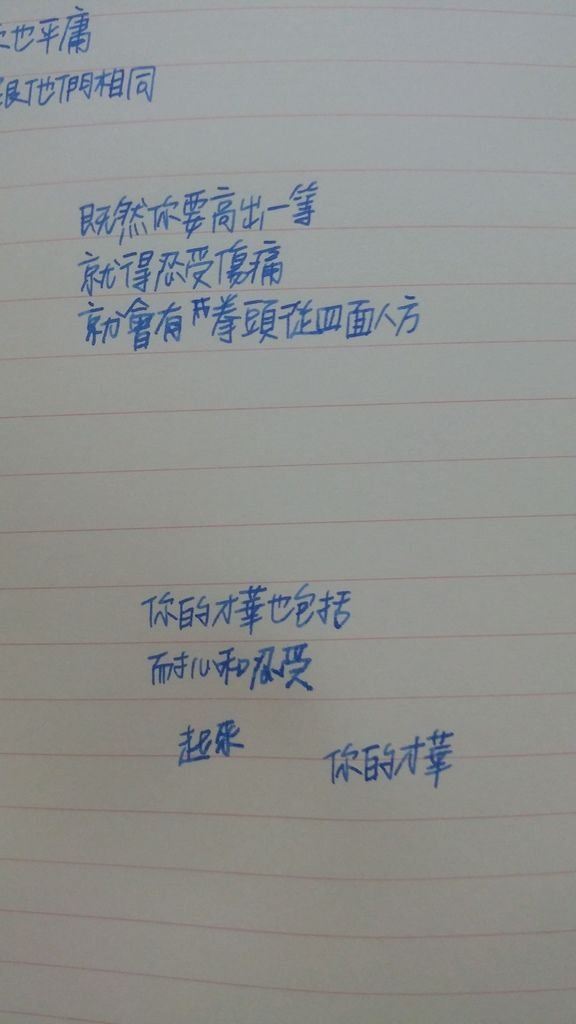 也平庸
跟他們相同
既然你要高出一等
就得忍受傷痛
就會有拳頭從四面八方
你的才華也包括
耐心和忍受
起來
你的才華